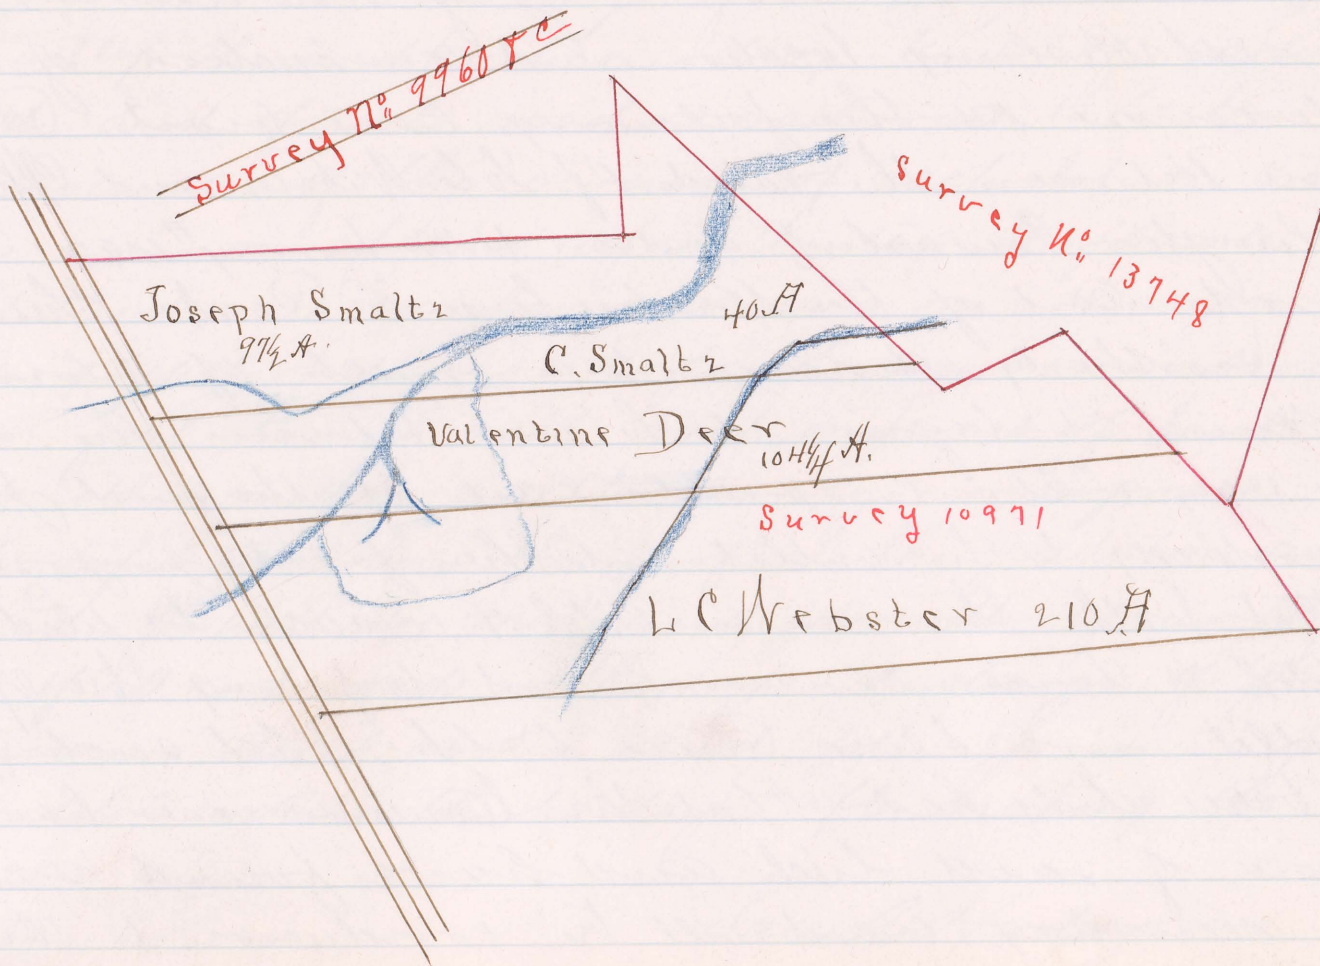 Survey No: 9960 & C
Survey No: 13748
Joseph Smaltz
97½ A.
40 A
C. Smaltz
Valentine Deer
104¼ A.
Survey 10971
L C Webster 210 A